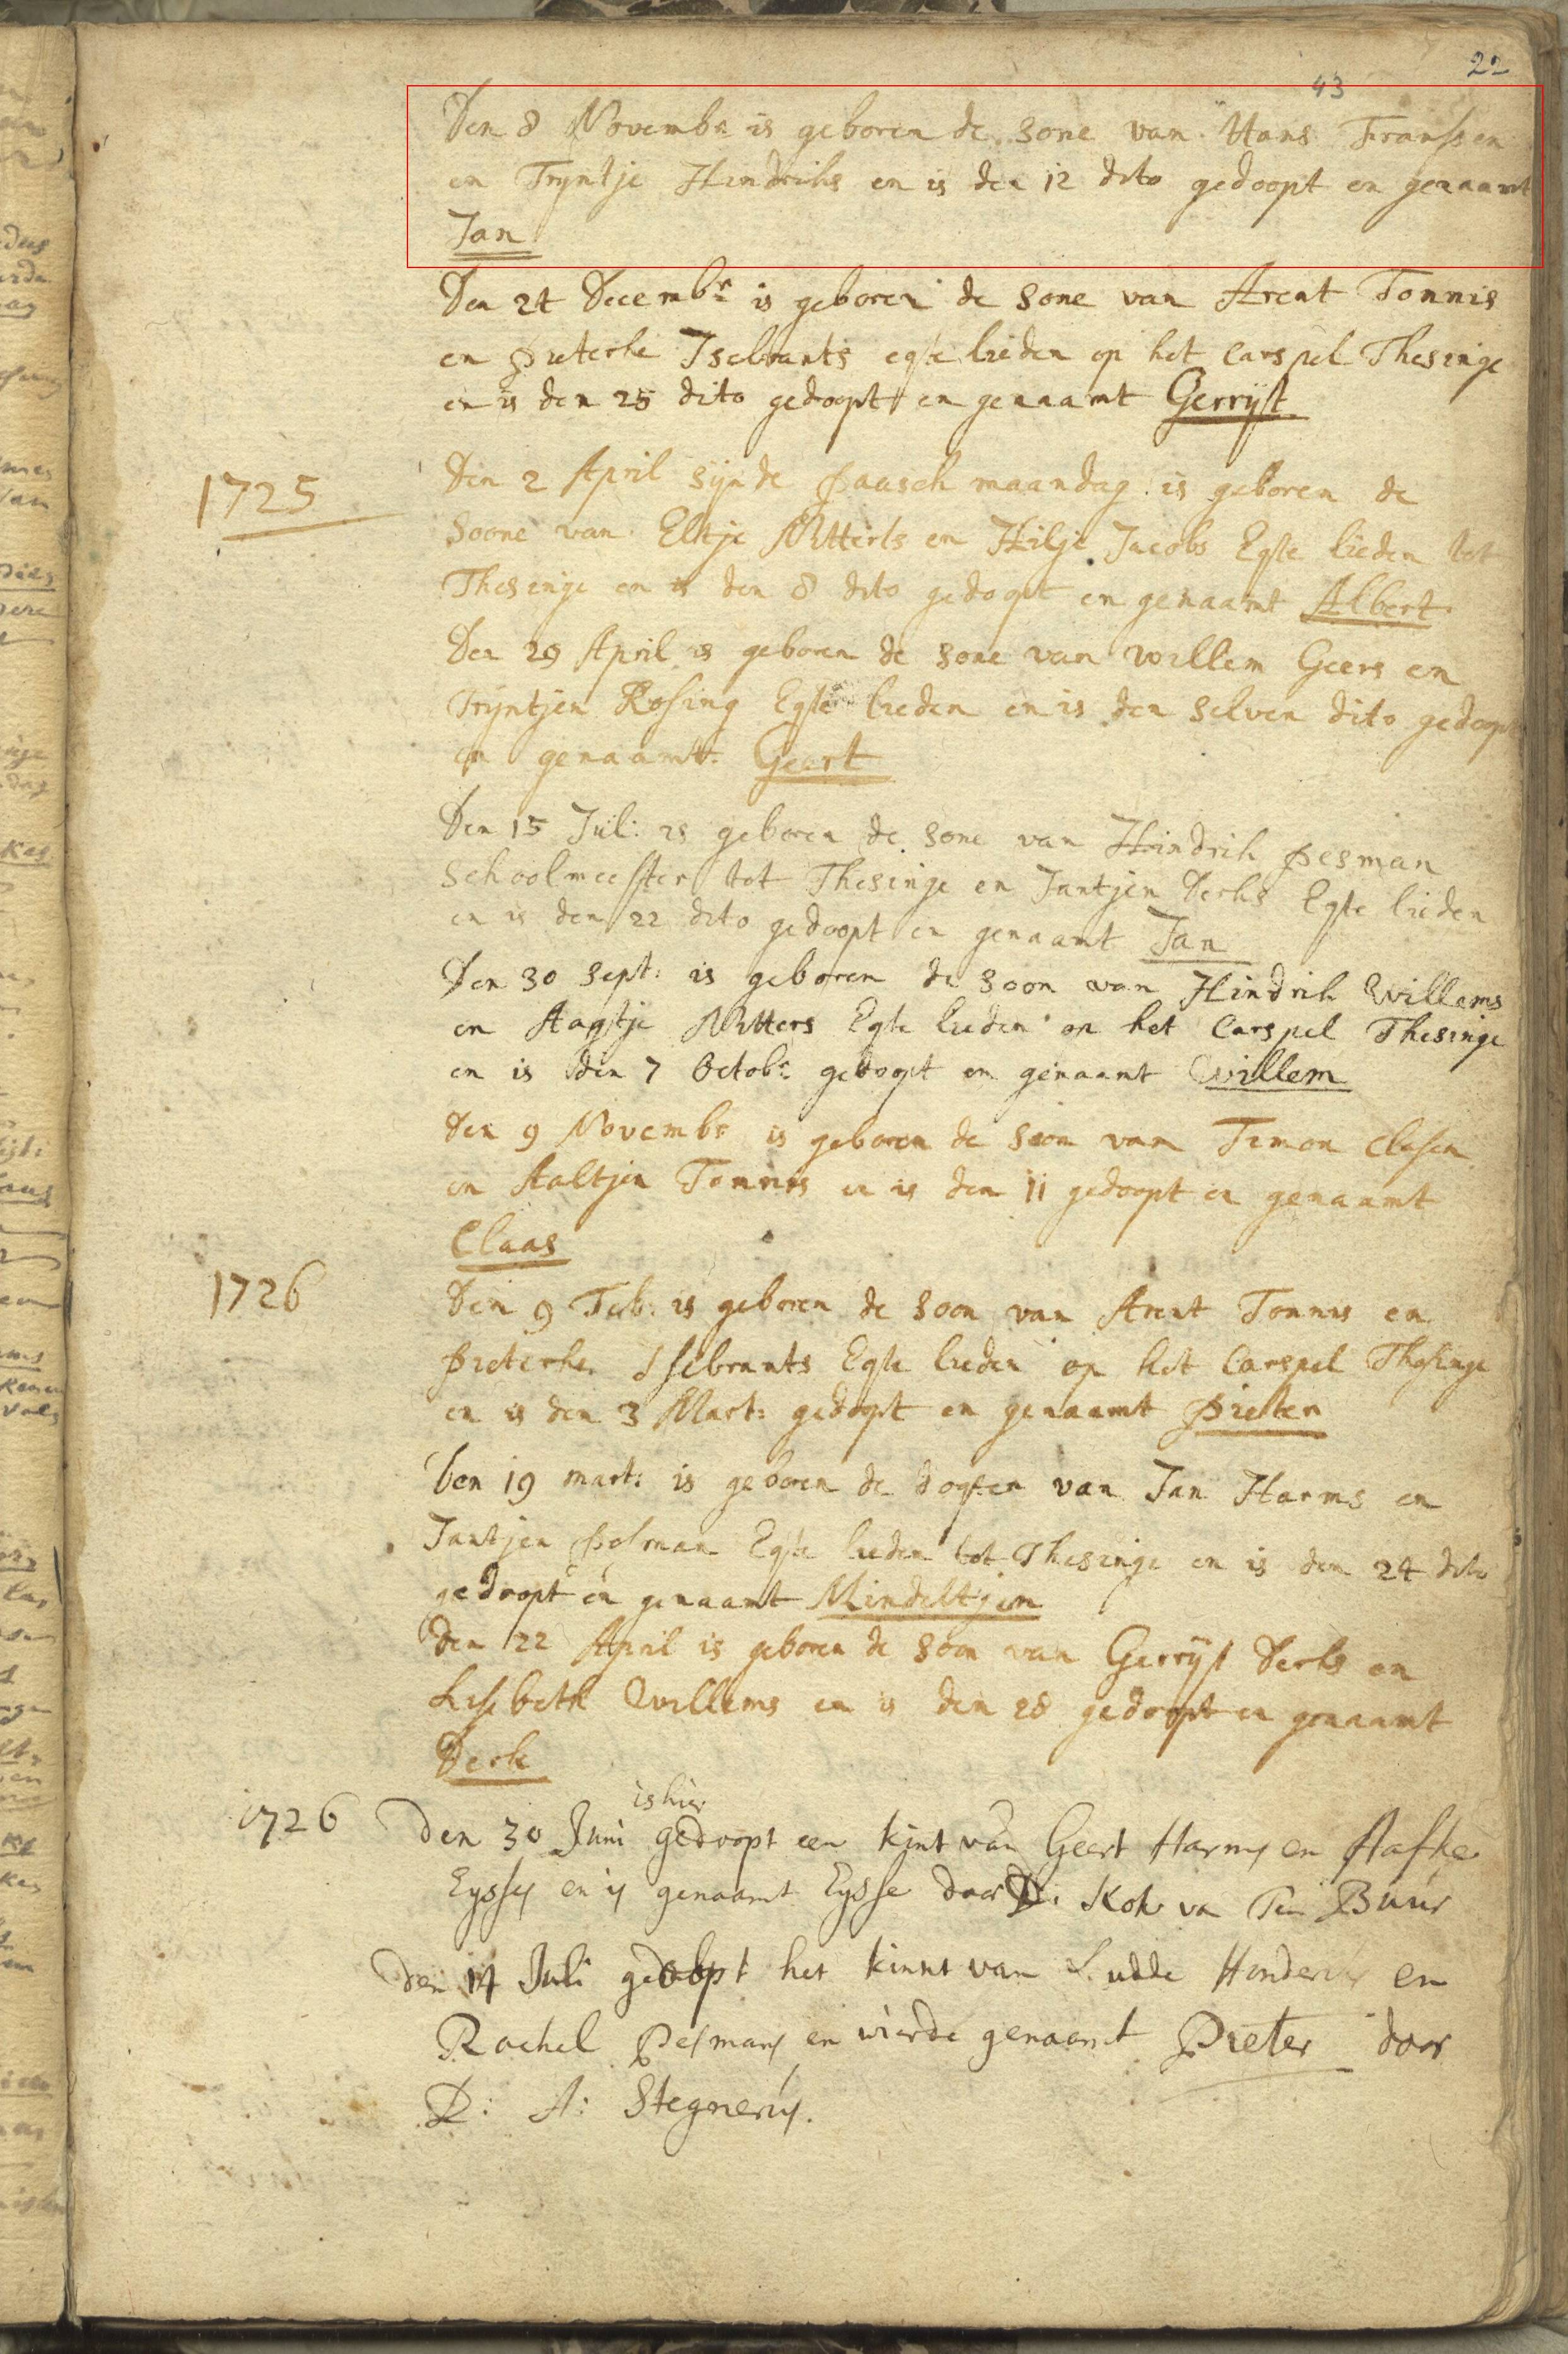 22
43
Den 8 Novembr: is geboren de sone van Hans Franssen
en Tryntje Hindriks en is den 12 dito gedoopt en genaamt
Jan
Den 24 Decembr: is geboren de sone van Arent Tonnis
en Pieterke Isebrants egte lieden op het Carspel Thesinge
en is den 25 dito gedoopt en genaamt Gerryt
1725
Den 2 April sijnde Paasch maandag is geboren de
Soone van Eltje Ritterts en Hilje Jacobs Egte lieden tot
Thesinge en is den 8 dito gedoopt en genaamt Albert
Den 29 April is geboren de sone van Willem Geers en
Trijntjen Rosing Egte lieden en is den selven dito gedoopt
en genaamt: Geert
Den 15 Jul: is geboren de sone van Hindrik Pesman
Schoolmeester tot Thesinge en Jantjen Derks Egte lieden
en is den 22 dito gedoopt en genaamt Jan
Den 30 Sept: is geboren de soon van Hindrik Willems
en Aagtje Ritters Egte lieden op het Carspel Thesinge
en is den 7 Octobr: gedoopt en genaamt Willem
Den 9 Novembr is geboren de soon van Timon Clasen
en Aaltjen Tonnis en is den 11 gedoopt en genaamt
Claas
1726
Den 9 Feb: is geboren de soon van Arent Tonnis en
Pieterke Isebrants Egte lieden op het Carspel Thesinge
en is den 3 Mart: gedoopt en genaamt Pieter
Den 19 mart: is geboren de dogter van Jan Harms en
Jantjen Pesman Egte lieden tot Thesinge en is den 24 dito
gedoopt en genaamt Mindeltjen
Den 22 April is geboren de soon van Gerryt Derks en
Lisebeth Willems en is den 28 gedoopt en genaamt
Derk
1726
is hier
Den 30 Juni gedoopt een kint van Geert Harms en Aafke
Eysses en is genaamt Eysse door D: Kok va Ten Buur
Den 14 Juli gedoopt het kinnt van Ludde Henderix en
Rachel Pesmans en wierde genaemt Pieter door
D: A: Stegnerus.